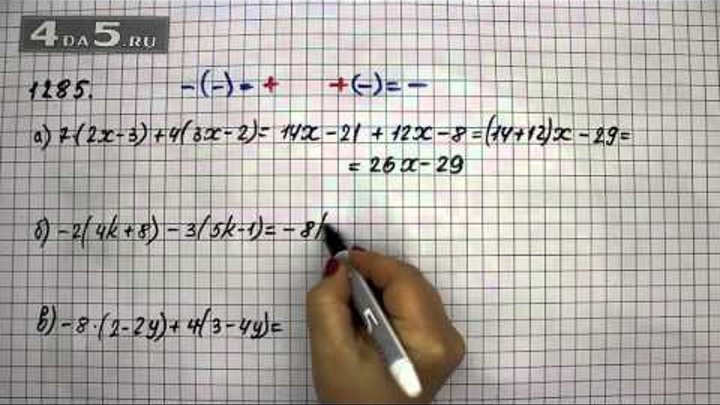 4DA5.RU
1285. -(-)=+ +(-)=-
а) 7(2x-3)+4(3x-2)= 14x-21+12x-8=(14+12)x-29=
= 26x-29
б) -2(4k+8)-3(5k-1)=-8k
в) -8·(2-2y)+4(3-4y)=